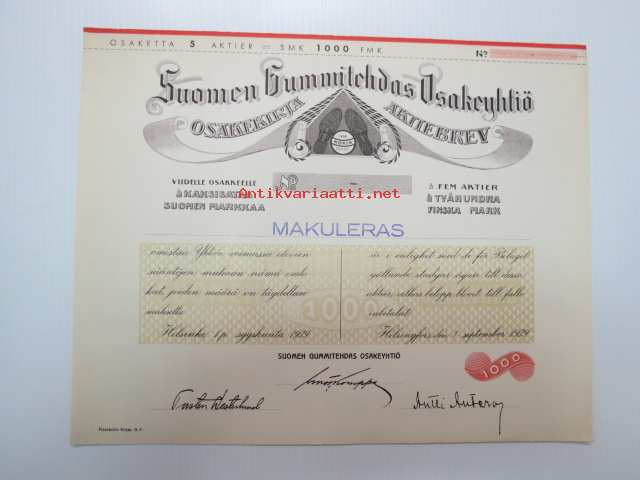 OSAKETTA 5 AKTIER = SMK 1000 FMK
Nº
Suomen Gummitehdas Osakeyhtiö
OSAKEKIRJA AKTIEBREV
NOKIA
VIIDELLE OSAKKEELLE
à KAKSISATAA
SUOMEN MARKKAA
Nº -
Antikvariaatti.net
à FEM AKTIER
à TVÅHUNDRA
FINSKA MARK
MAKULERAS
omistaa Yhtiön voimassa olevien
sääntöjen mukaan nämä osak-
keet, joiden määrä on täydelleen
maksettu
Helsinki 1 p. syyskuuta 1929
är i enlighet med de för Bolaget
gällande stadgar ägare till dessa
aktier, vilkas belopp blivit till fullo
inbetalat
Helsingfors den 1 september 1929
1000
SUOMEN GUMMITEHDAS OSAKEYHTIÖ
1000
Torsten Westerlund
Antti Antero